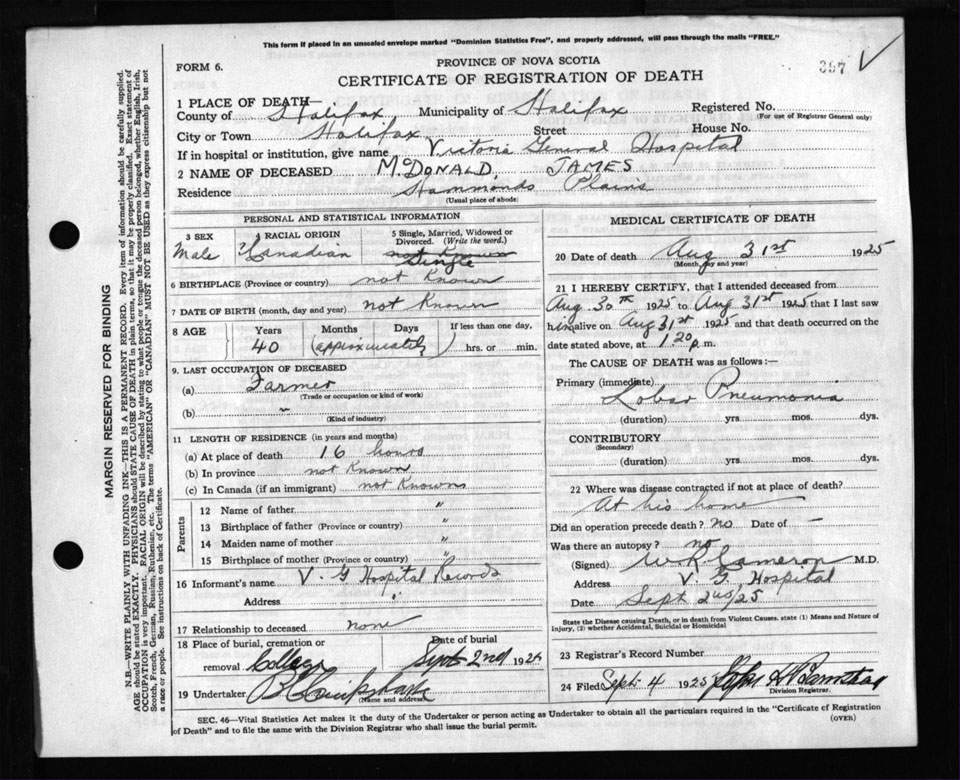 This form if placed in an unsealed envelope marked "Dominion Statistics Free", and properly addressed, will pass through the mails "FREE."
FORM 6.
PROVINCE OF NOVA SCOTIA
CERTIFICATE OF REGISTRATION OF DEATH
397
1 PLACE OF DEATH—
County of Halifax Municipality of Halifax Registered No.
(For use of Registrar General only)
City or Town Halifax Street House No.
If in hospital or institution, give name Victoria General Hospital
2 NAME OF DECEASED McDONALD, JAMES
Residence Hammonds Plains
(Usual place of abode)
PERSONAL AND STATISTICAL INFORMATION
3 SEX 4 RACIAL ORIGIN 5 Single, Married, Widowed or Divorced. (Write the word.)
Male ?Canadian not Known Single
6 BIRTHPLACE (Province or country) not Known
7 DATE OF BIRTH (month, day and year) not Known
8 AGE Years Months Days If less than one day,
40 (approximately) hrs. or min.
9. LAST OCCUPATION OF DECEASED
(a) Farmer
(Trade or occupation or kind of work)
(b) "
(Kind of industry)
11 LENGTH OF RESIDENCE (in years and months)
(a) At place of death 16 hours
(b) In province not Known
(c) In Canada (if an immigrant) not Known
Parents
12 Name of father "
13 Birthplace of father (Province or country) "
14 Maiden name of mother "
15 Birthplace of mother (Province or country) "
16 Informant's name V. G Hospital Records
Address "
17 Relationship to deceased none
18 Place of burial, cremation or removal College
Date of burial Sept 2nd 192
19 Undertaker
(Name and address)
MEDICAL CERTIFICATE OF DEATH
20 Date of death Aug 31st 1925
(Month, day and year)
21 I HEREBY CERTIFY, that I attended deceased from
Aug 30th 1925 to Aug 31st 1925 that I last saw
him alive on Aug 31st 1925 and that death occurred on
date stated above, at 1.20 p.m.
The CAUSE OF DEATH was as follows:—
Primary (immediate) Lobar Pneumonia
(duration) yrs. mos. dys.
CONTRIBUTORY
(Secondary)
(duration) yrs. mos. dys.
22 Where was disease contracted if not at place of death?
At his home
Did an operation precede death? no Date of —
Was there an autopsy? no
(Signed) W. R. Cameron M.D.
Address V. G. Hospital
Date Sept 2nd/25
State the Disease causing Death, or in death from Violent Causes, state (1) Means and Nature of Injury, (2) whether Accidental, Suicidal or Homicidal
23 Registrar's Record Number
24 Filed Sept 4 1925 John
Division Registrar.
SEC. 46—Vital Statistics Act makes it the duty of the Undertaker or person acting as Undertaker to obtain all the particulars required in the "Certificate of Registration
of Death" and to file the same with the Division Registrar who shall issue the burial permit.
(OVER)
MARGIN RESERVED FOR BINDING
N.B.—WRITE PLAINLY WITH UNFADING INK—THIS IS A PERMANENT RECORD. Every item of information should be carefully supplied.
AGE should be stated EXACTLY. PHYSICIANS should STATE CAUSE OF DEATH in plain terms, so that it may be properly classified. Exact statement of
OCCUPATION is very important. RACIAL ORIGIN will be described by stating to what people or tongue the deceased person belonged, whether English, Irish,
Scotch, French, German, Russian, Ruthenian, etc. The terms "AMERICAN" OR "CANADIAN" MUST NOT BE USED as they express citizenship but not
a race or people. See instructions on back of Certificate.